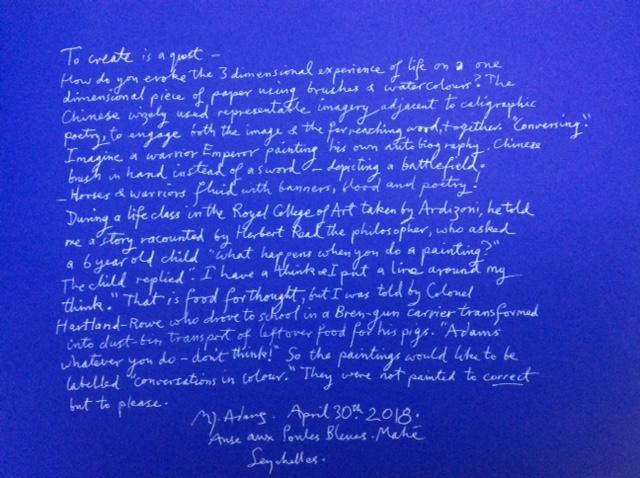 To create is a quest -
How do you evoke the 3 dimensional experience of life on a one
dimensional piece of paper using brushes & watercolours? The
Chinese wisely used representable imagery adjacent to caligraphic
poetry, to engage both the image & the far reaching word, together. "Conversing".
Imagine a warrior Emperor painting his own autobiography. Chinese
brush in hand instead of a sword - depicting a battlefield.
- Horses & warriors fluid with banners, blood and poetry!
During a life class in the Royal College of Art taken by Ardizoni, he told
me a story racounted by Herbert Read the philosopher, who asked
a 6 year old child "what happens when you do a painting?"
The child replied". I have a think & I put a line around my
think." That is food for thought, but I was told by Colonel
Hartland-Rowe who drove to school in a Bren-gun carrier transformed
into dust-bin transport of leftover food for his pigs. "Adams
whatever you do - don't think!" So the paintings would like to be
labelled "conversations in colour." They were not painted to correct
but to please.
MJ. Adams. April 30th 2018.
Anse aux Poules Bleues. Mahé
Seychelles.